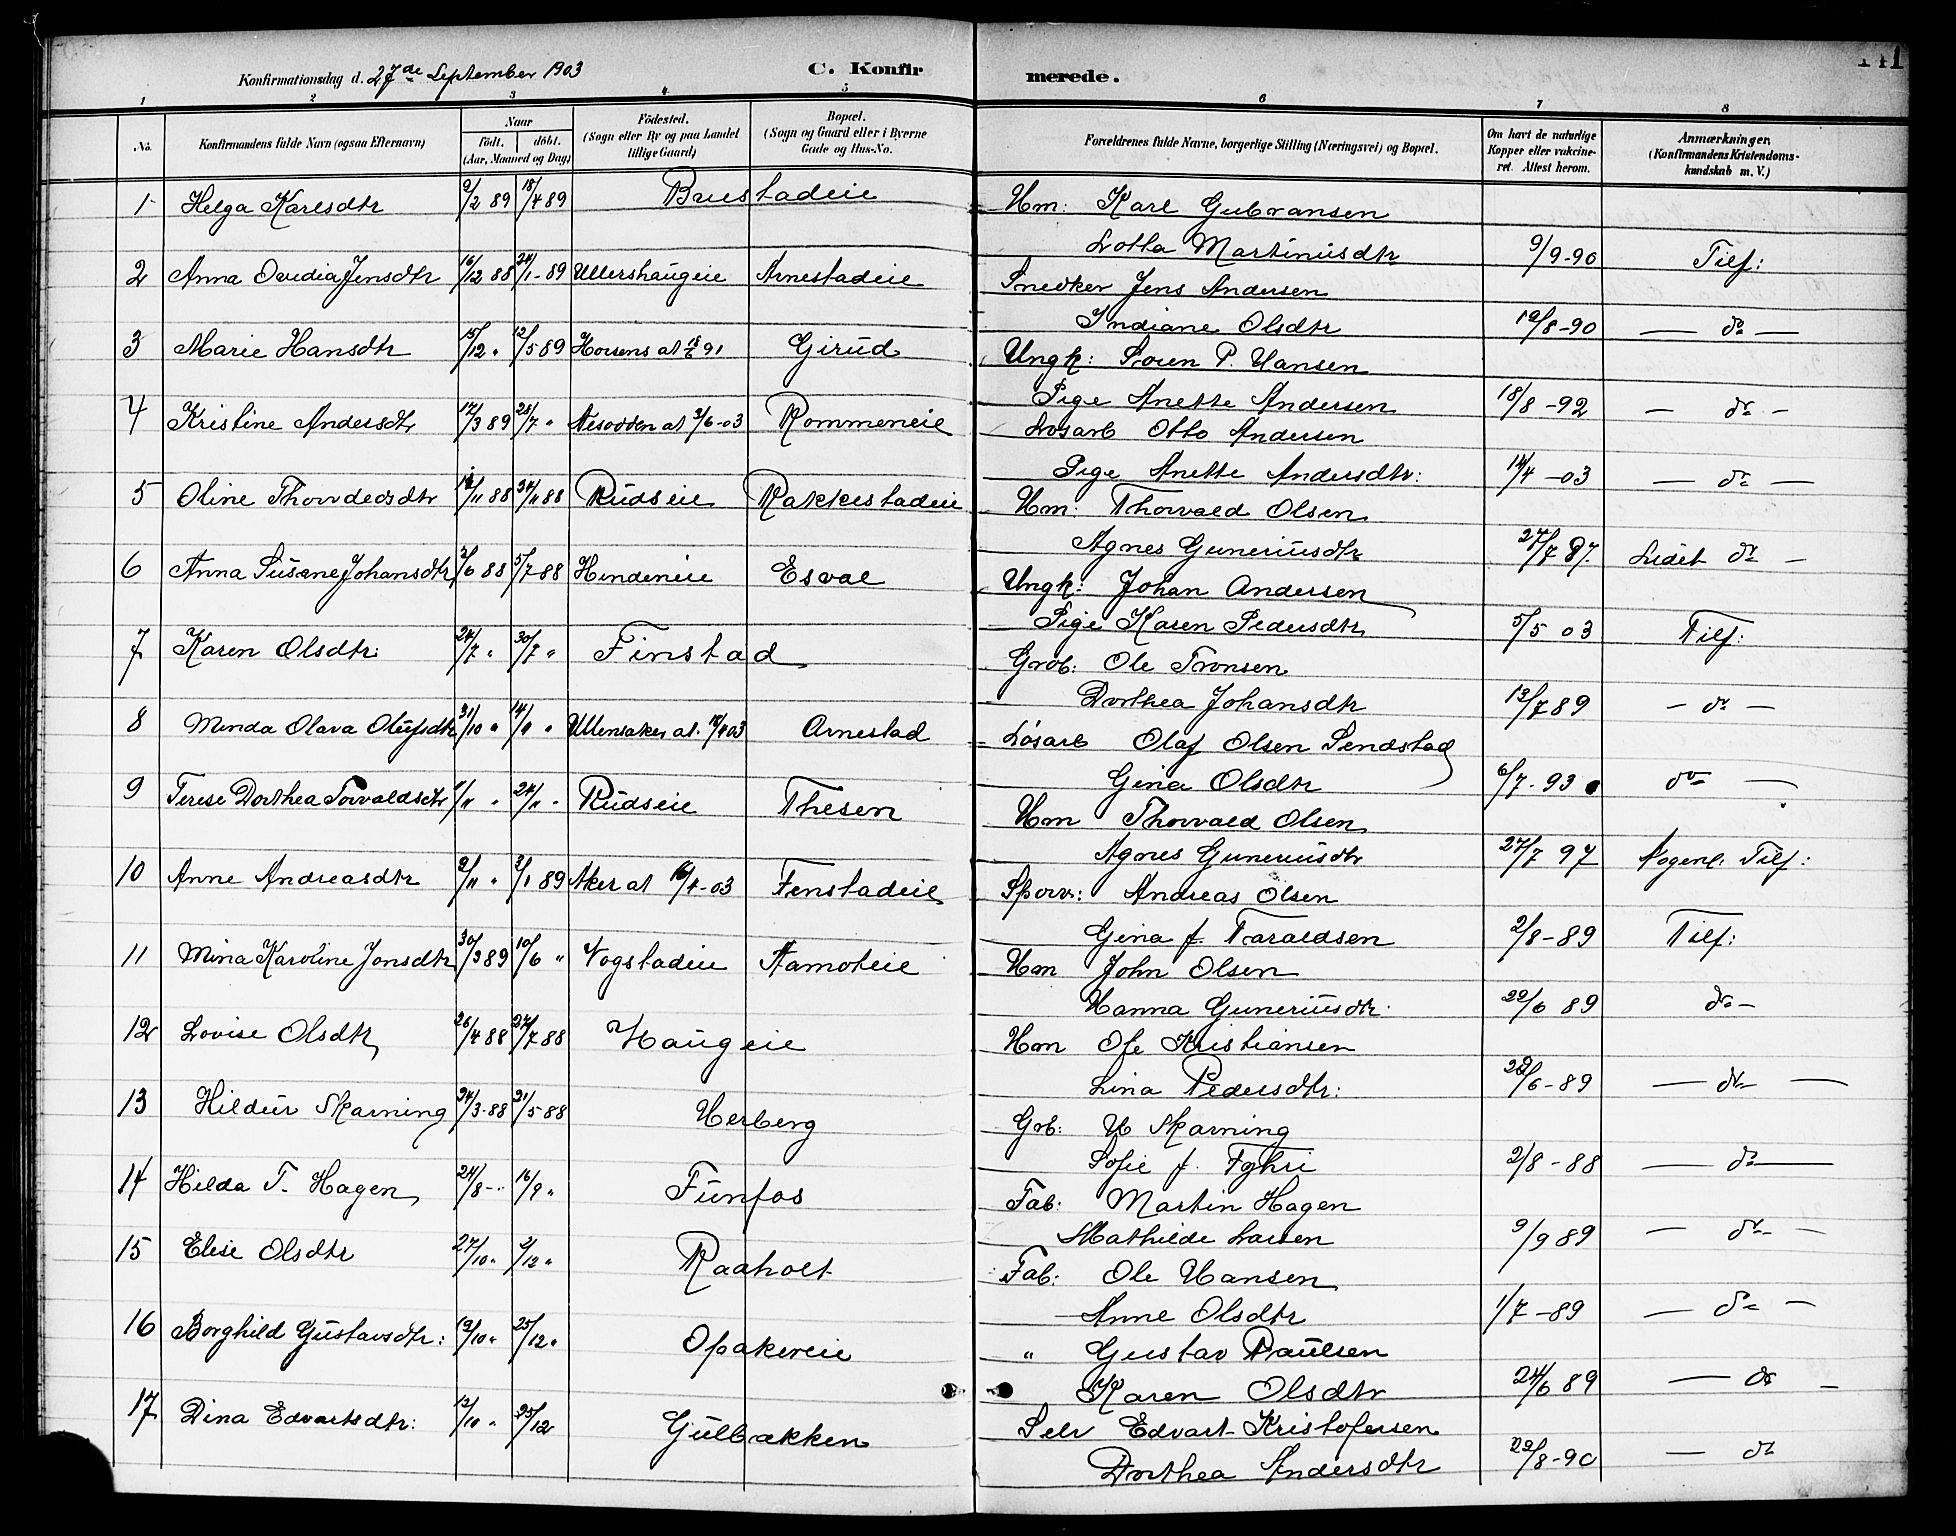 Konfirmationsdag d. 27de September 1903 C. Konfir merede. 141
1 2 3 4 5 6 7 8
No. Konfirmandens fulde Navn (ogsaa Efternavn) Naar födt. döbt. (Aar, Maaned og Dag) Födested. (Sogn eller By og paa Landet tillige Gaard) Bopæl. (Sogn og Gaard eller i Byerne Gade og Hus-No. Forældrenes fulde Navne, borgerlige Stilling (Næringsvei) og Bopæl. Om havt de naturlige Kopper eller vakcineret. Attest herom. Anmærkninger. (Konfirmandens Kristendomskundskab m. V.)
1 Helga Karlsdtr 9/2 89 18/4 89 Brustadeie Hm: Karl Gulbransen
Lotta Martinusdtr 9/9-90 Tilf:
2 Anna Ovidia Jensdtr 16/12 88 24/1-89 Ullershaugeie Arnestadeie Snedker Jens Andersen
Indiane Olsdtr 19/8-90 — do —
3 Marie Hansdtr 15/12 " 12/5 89 Horsens at 91 Girud Ungk: Søren P. Hansen
Pige Anette Andersen 18/8-92 — do —
4 Kristine Andersdtr 17/3 89 28/7 " Nesodden at 3/6-03 Rommeneie Løsarb Otto Andersen
Pige Anette Andersdtr: 14/4-03 — do —
5 Oline Thorvdedsdtr /11 88 /11 88 Rudseie Rakkestadeie Hm: Thorvald Olsen
Agnes Guneriusdtr 27/7 97. Lidet do —
6 Anna Susane Johansdtr 2/6 88 5/7 88 Hendeneie Esval Ungk: Johan Andersen
Pige Karen Pedersdtr 5/5 03 Tilf:
7 Karen Olsdtr: 24/7 " 30/7 " Finstad Grdb: Ole Tronsen
Dorthea Johansdtr 13/7 89 — do —
8 Minda Olava Olufsdtr 31/10 " 14/11 " Ullensaker at. 03 Arnestad Løsarb Olaf Olsen Sendstad
Gina Olsdtr 6/7-93 do —
9 Terese Dorthea Torvaldsdtr 1/11 " 24/11 " Rudseie Thesen Hm Thorvald Olsen
Agnes Guneriusdtr 27/7 97 Nogenl. Tilf:
10 Anne Andreasdtr 9/11 " 3/1 89 Aker at -03 Finstadeie Sporv: Andreas Olsen
Gina f. Taraldsen 2/8-89 Tilf:
11 Mina Karoline Jonsdtr 30/3 89 10/6 " Vogstadeie Aamoteie Hm John Olsen
Hanna Guneriusdtr: 22/6 89 do —
12 Lovise Olsdtr 26/4 88 /7 88 Haugeie Hm Ole Kristiansen
Lina Pedersdtr: 22/6-89 — do —
13 Hildur Skarning 24/3-88 21/5-88 Herberg Grb: H Skarning
Sofie f. Fyhri 2/8-88 — do —
14 Hilda T. Hagen 24/8 - " 16/9 " Funfos Fab: Martin Hagen
Mathilde Larsen 9/9 89 — do —
15 Elise Olsdtr 27/10 " 2/12 " Raaholt Fab: Ole Hansen
Anne Olsdtr 1/7-89 — do —
16 Borghild Gustavsdtr: 19/10 " 25/12 " Opakereie " Gustav Paulsen
Karen Olsdtr 24/6 89 — do —
17 Dina Edvartsdtr: 12/10 " 25/12 Gulbækken Selv Edvart Kristofersen
Dorthea Andersdtr 22/8-90 — do